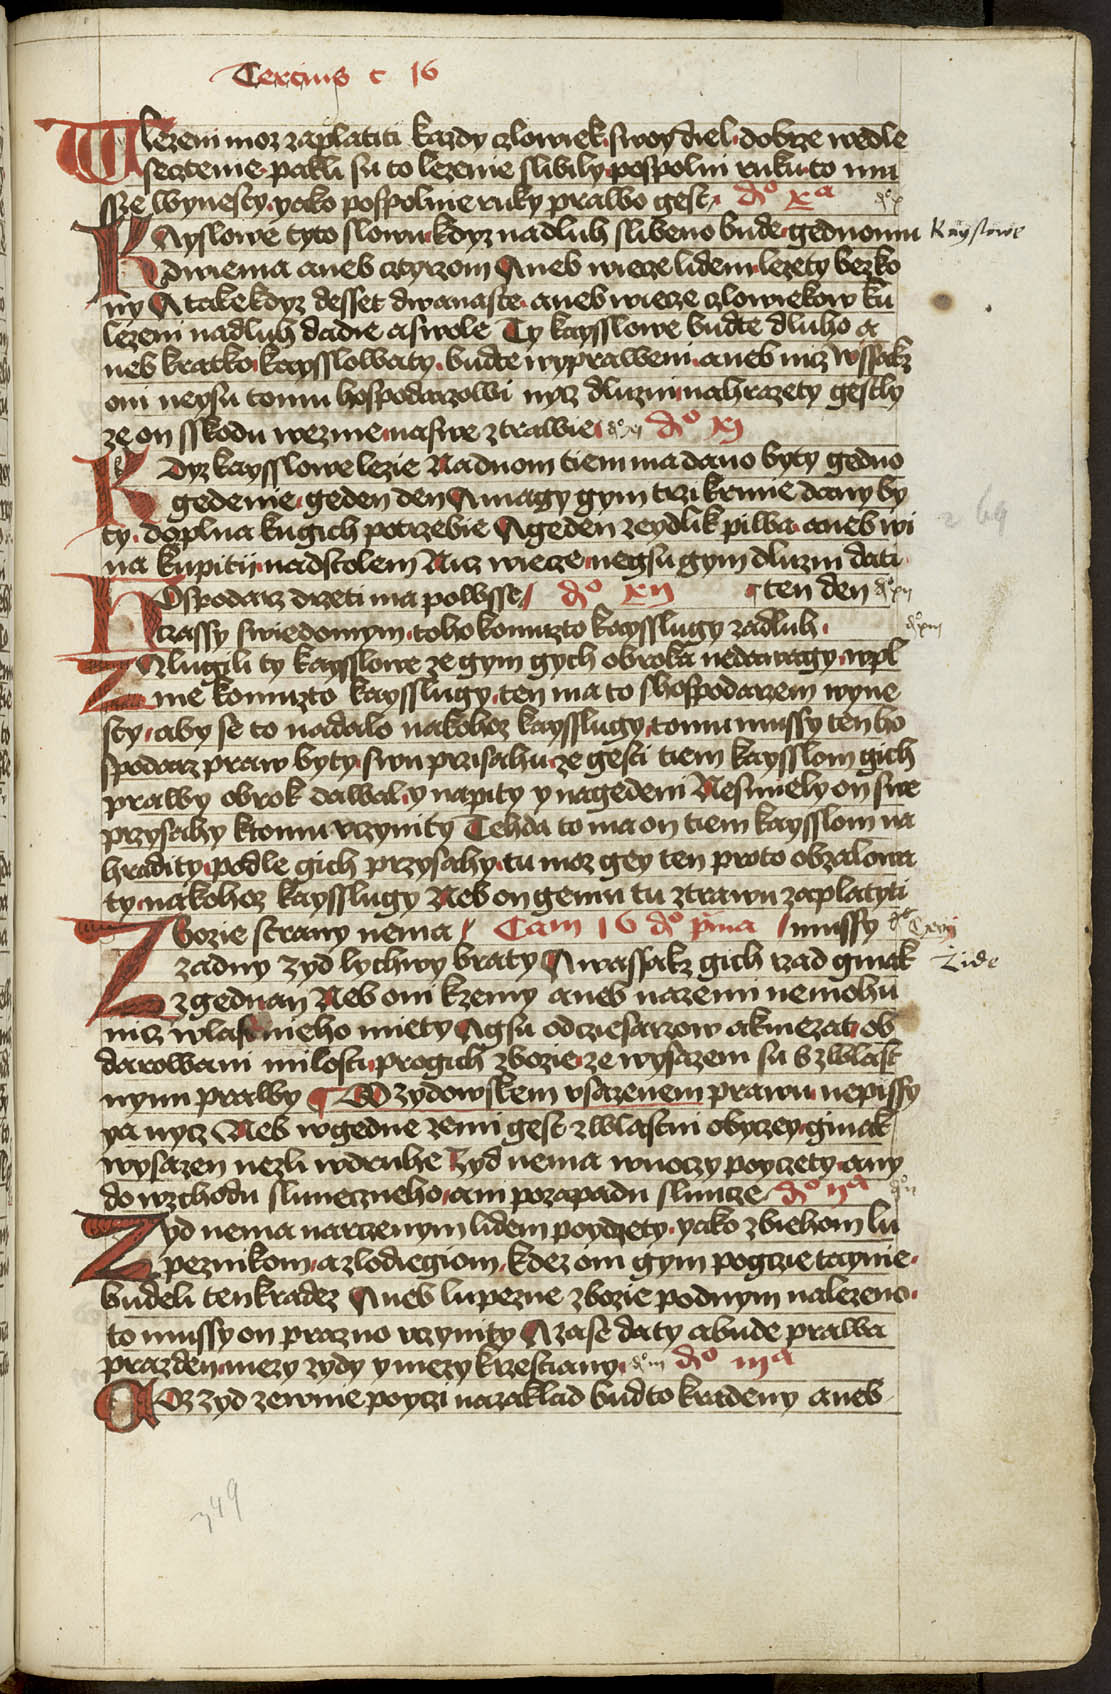 Tercius c 16
W lezeni moz zaplatiti kazdy czlowiek swoy diel dobrze wedle
secztenie pakli su to lezenie slibily pospolni ruku to mu
sze wynesty yako pospolnie ruky prawo gest d° xª
K Ayslowe tyto slowu kdyz nadluh slibeno bude gednomu
dwiema aneb cztyrzom Aneb wiecze lidem lezety bez ko
ny A take kdyz desset dwanaste aneb wiecze czlowiekow ku
lezem nadluh dadie a swole Ty kaysslowe budte dluho a
neb kratko kaysslowaty budte wypraweni aneb nicz wssakz
oni neysu tomu hospodarzowi nycz dluzni nahrazety gestly
ze on sskodu wezme na swe ztrawie d° xj
K Dyz kaysslowe lezie Na dnom tiem ma dano byty gedno
gedenie geden den A magy gym trzi krmie dany by
ty doplna kugich potrzebie A geden zeydlik piwa aneb wi
na kupiti nad stolem Nicz wiecze negsu gym dluzni dati
H Ospodarz drzeti ma powsse d° xij ten den
czassy swiedomym toho komuzto kaysslugy zadluh
Z Alugili ty kaysslowe ze gym gych obroka nedawagy wpl
nie komuzto kaysslugy ten ma to shospodarzem wyne
sty aby se to nadalo nakohoz kaysslugy tomu mussy ten ho
spodarz praw byty swu przisahu ze gest tiem kaysslom gich
prawy obrok dawal y napity y nagedeni Nesmiely on swe
przysahy ktomu vczynity Tehda to ma on tiem kaysslom na
hradity podle gich przysahy tu moz gey ten proto obzalowa
ty nakohoz kaysslugy Neb on gemu tu ztrawu zaplatyti
Z bozie strany nema Cam 16 d° pma mussy
zadny zyd lychwy braty A wassakz gich rzad ginak
zgednan Neb oni kzemy aneb nazemi nemohu
nicz wlastnieho miety A gsu od ciesarzow a kniezat ob
darowani milosti pro gich zbozie ze wysazeni su s zwlast
nymi prawy O zydowskem vsazenem prawu nepissy
ya nycz Neb w gedne zemi gest zwlastni obyczey ginak
wysazen nezli w druhe Zyd nema wnoczy poyczety any
do wzchodu slunecznieho ani po zapadu sluncze d° ijª
Z yd nema narczenym lidem poyczety yako zbiehom lu
peznikom a zlodiegiom kdez oni gym pogczie taynie
budeli ten kradez Aneb lupezne zbozie podnym nalezeno
to mussy on prazno vczynity A zase daty a bude prawa
prazden mezy zydy y mezy krzestiany d° iij d° iijª
C Oz zyd zewnie poyczi nazaklad bud to kradeny aneb
Kayslowe
Zide
269
349